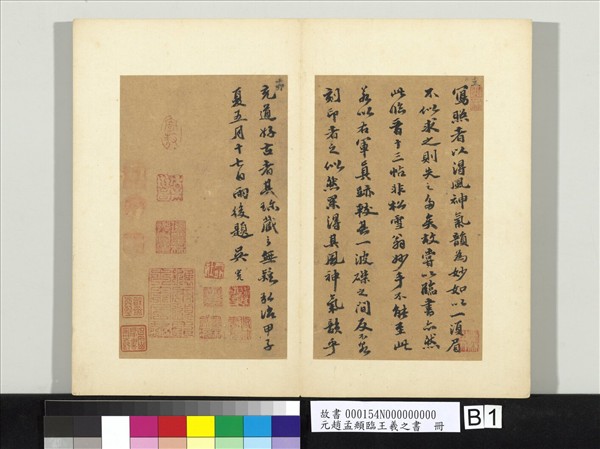 寫照者以得風神氣韻為妙如以一須眉
不似求之則失之多矣故嘗以臨書亦然
此臨晉十三帖非松雪翁妙手不能至此
若以右軍真跡較其一波磔之間反不若
刻印者之似然果得其風神氣韻乎
克道好古者其珍藏之無疑弘治甲子
夏五月十七日雨後題 吳寬
故書 000154N000000000
元趙孟頫臨王羲之書 冊
B 1